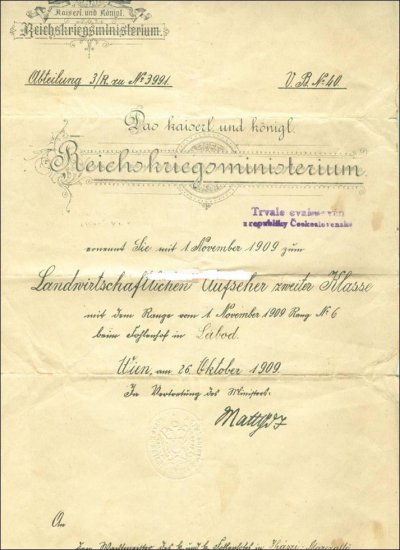 Kaiserl. und Königl.
Reichskriegsministerium.
Abteilung 3/R. zu № 3991.
V. B. № 40.
Das kaiserl. und königl.
Reichskriegsministerium.
Trvale
z republiky Československé
ernennt Sie mit 1. November 1909 zum
Landwirtschaftlichen Aufseher zweiter Klasse
mit dem Range vom 1. November 1909 Rang № 6
beim Fohlenhof in Lábod.
Wien, am 26. Oktober 1909.
In Vertretung des Ministers:
An
den Wachtmeister des k. und k. Fohlenhofes in